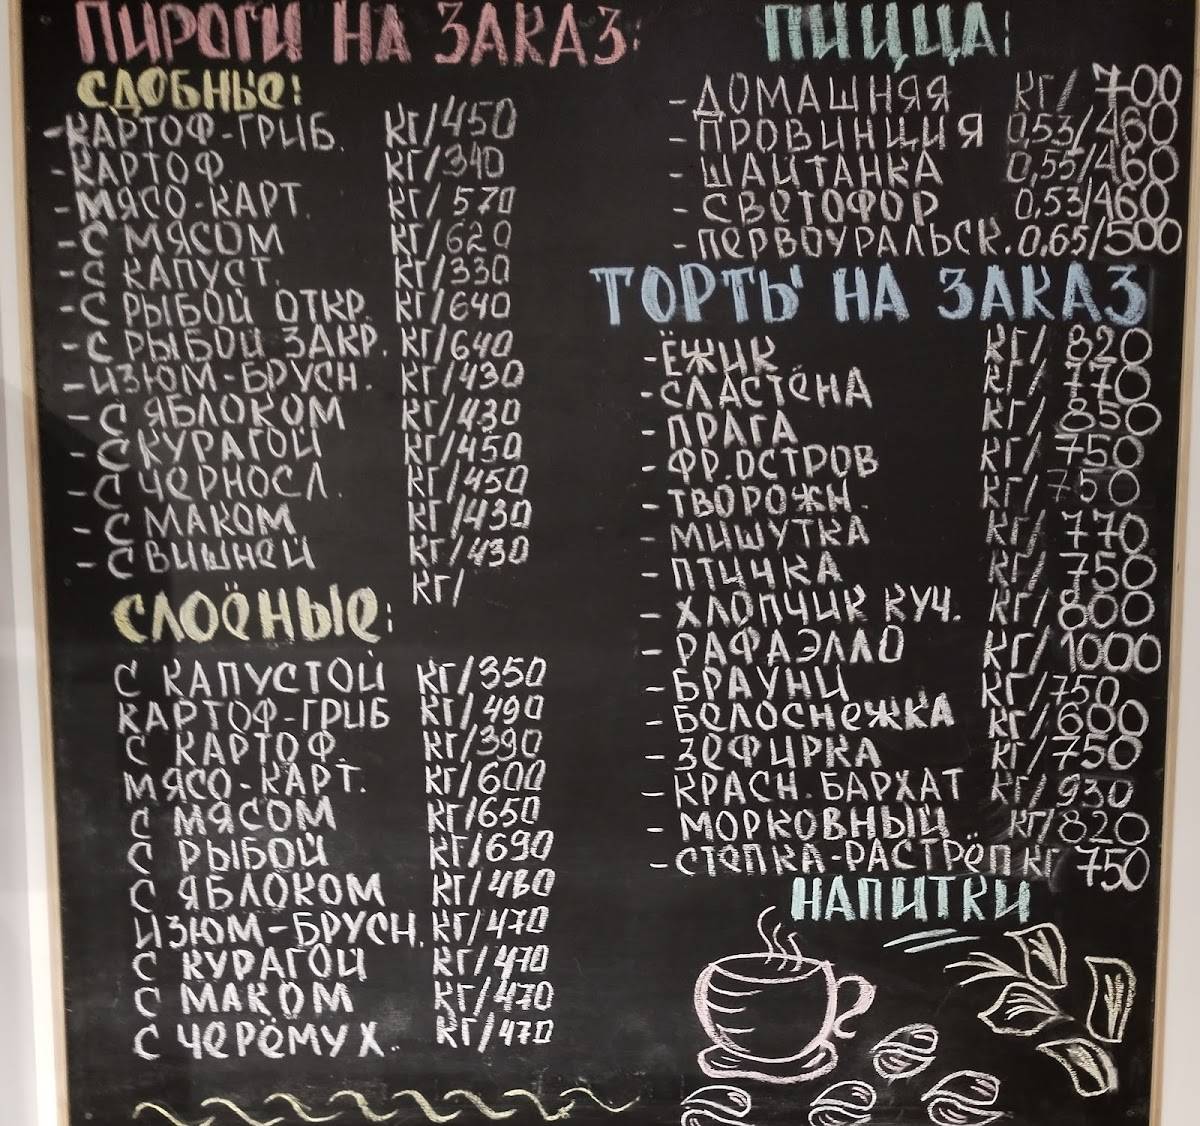 ПИРОГИ НА ЗАКАЗ:
СДОБНЫЕ:
-КАРТОФ-ГРИБ. КГ/450
-КАРТОФ. КГ/340
-МЯСО-КАРТ. КГ/570
-С МЯСОМ КГ/620
-С КАПУСТ. КГ/330
-С РЫБОЙ ОТКР. КГ/640
-С РЫБОЙ ЗАКР. КГ/640
-ИЗЮМ-БРУСН. КГ/430
-С ЯБЛОКОМ КГ/430
-С КУРАГОЙ КГ/450
-С ЧЕРНОСЛ. КГ/450
-С МАКОМ КГ/430
-С ВИШНЕЙ КГ/430
КГ/
СЛОЁНЫЕ:
С КАПУСТОЙ КГ/350
КАРТОФ-ГРИБ КГ/490
С КАРТОФ. КГ/390
МЯСО-КАРТ. КГ/600
С МЯСОМ КГ/650
С РЫБОЙ КГ/690
С ЯБЛОКОМ КГ/480
ИЗЮМ-БРУСН. КГ/470
С КУРАГОЙ КГ/470
С МАКОМ КГ/470
С ЧЕРЁМУХ. КГ/470
ПИЦЦА:
-ДОМАШНЯЯ КГ/700
-ПРОВИНЦИЯ 0,53/460
-ШАЙТАНКА 0,55/460
-СВЕТОФОР 0,53/460
-ПЕРВОУРАЛЬСК. 0,65/500
ТОРТЫ НА ЗАКАЗ
-ЁЖИК КГ/820
-СЛАСТЁНА КГ/770
-ПРАГА КГ/850
-ФР.ОСТРОВ КГ/750
-ТВОРОЖН. КГ/750
-МИШУТКА КГ/770
-ПТИЧКА КГ/750
-ХЛОПЧИК КУЧ. КГ/800
-РАФАЭЛЛО КГ/1000
-БРАУНИ КГ/750
-БЕЛОСНЕЖКА КГ/600
-ЗЕФИРКА КГ/750
-КРАСН.БАРХАТ КГ/930
-МОРКОВНЫЙ КГ/820
-СТЕПКА-РАСТРЁП КГ 750
НАПИТКИ